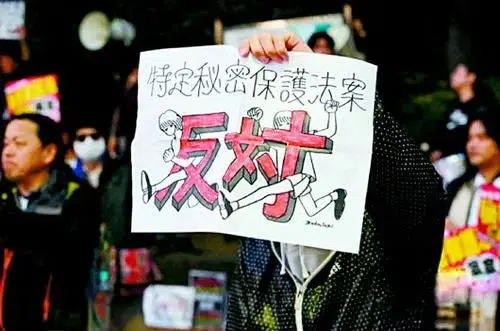 特定秘密保護法案
反対